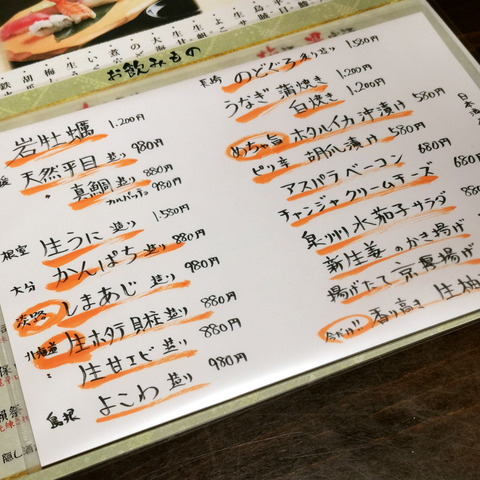 お飲みもの
岩牡蠣 1,200円
天然平目 造り 980円
〃 真鯛 造り 880円
カルパッチョ 980円
根室 生うに 造り 1,580円
大分 かんぱち 造り 880円
淡路 しまあじ 造り 980円
北海道 生ホタテ貝柱 造り 880円
〃 生甘エビ 造り 880円
島根 よこわ 造り 980円
長崎 のどぐろ 炙り造り 1,580円
うなぎ 蒲焼き 1,200円
白焼き 1,200円
めちゃ旨 ホタルイカ沖漬け 580円
ピリ辛 胡瓜し漬け 580円
アスパラベーコン 680円
チャンジャクリームチーズ 680円
泉州水茄子サラダ 880円
新生姜のかき揚げ
揚げたて京厚揚げ
今だけ!! 香り高き 生
隠し酒